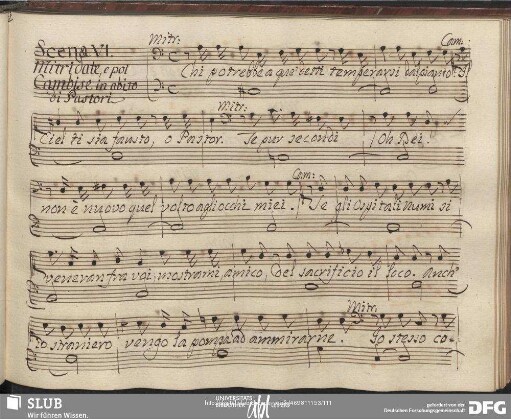 Scena VI
Mitridate, e poi
Cambise in abito
di Pastori
Mitr: Cam:
Chi potrebbe a questi temperarsi dal pianto! Il
Mitr:
Ciel ti sia fausto, o Pastor. Te pur secondi (Oh Dei!
Cam:
non è nuovo quel volto agl'occhi miei.) Se gli Ospitali numi si
veneran fra voi, mostrami amico, del sacrificio il loco. Anch'
Mitr.
io straniero vengo la pompa ad ammirarne. Io stesso co-
SLUB
Wir führen Wissen.
UNIVERSITÄTS
gefördert von der
DFG
Deutsche Forschungsgemeinschaft